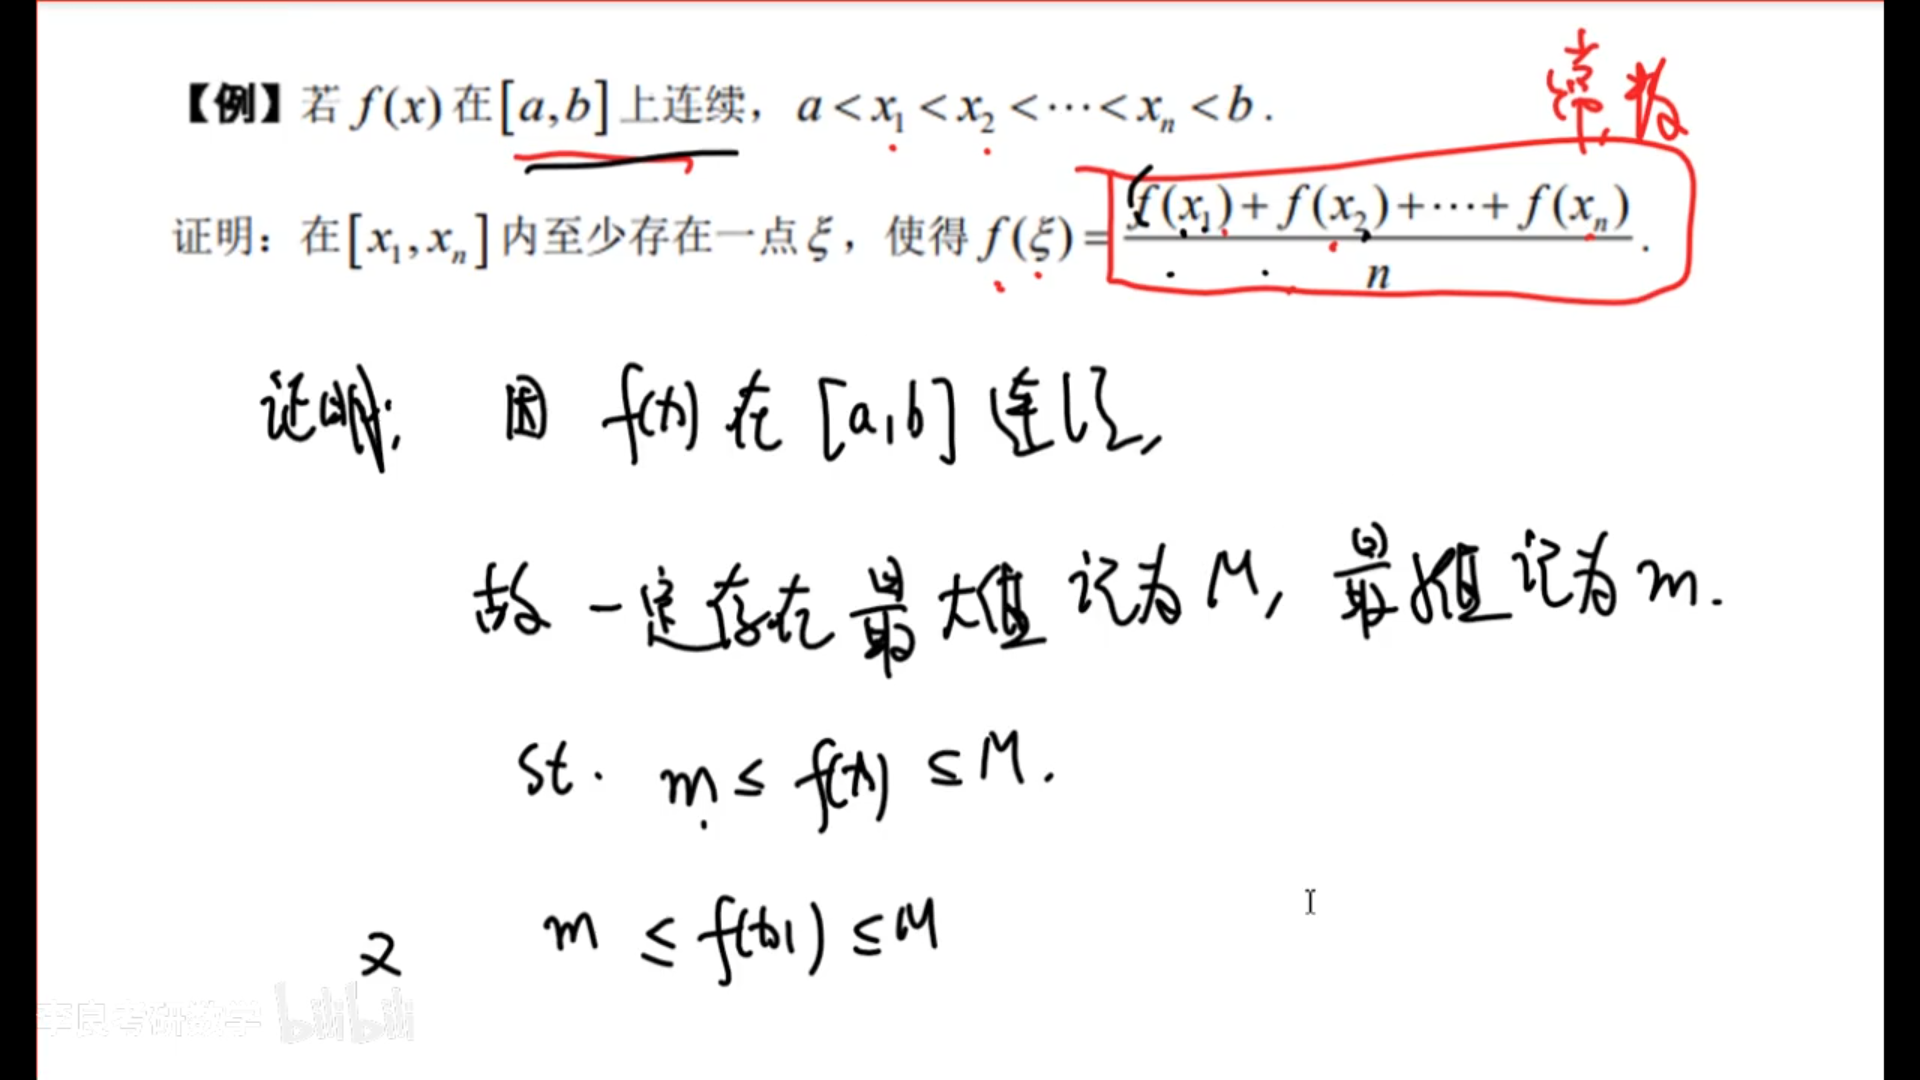 常数
【例】若 f(x) 在[a,b]上连续，a<x₁<x₂<⋯<xₙ<b.
证明：在[x₁,xₙ]内至少存在一点ξ，使得 f(ξ)=(f(x₁)+f(x₂)+⋯+f(xₙ))/n.
证明: 因 f(x) 在 [a,b] 连续,
故一定存在最大值记为M, 最小值记为m.
st. m≤f(x)≤M.
又 m≤f(x1)≤M
李良考研数学 bilibili